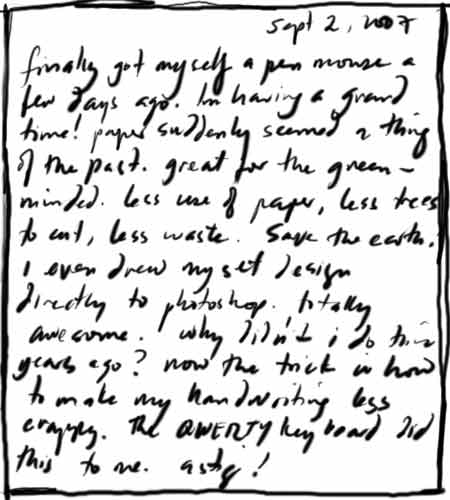 Sept 2, 2007
finally got myself a pen mouse a
few days ago. I'm having a grand
time! paper suddenly seemed a thing
of the past. great for the green-
minded. less use of paper, less trees
to cut, less waste. Save the earth.
I even drew my set design
directly to photoshop. totally
awesome. why didn't i do this
years ago? now the trick is how
to make my handwriting less
crappy. The QWERTY keyboard did
this to me.